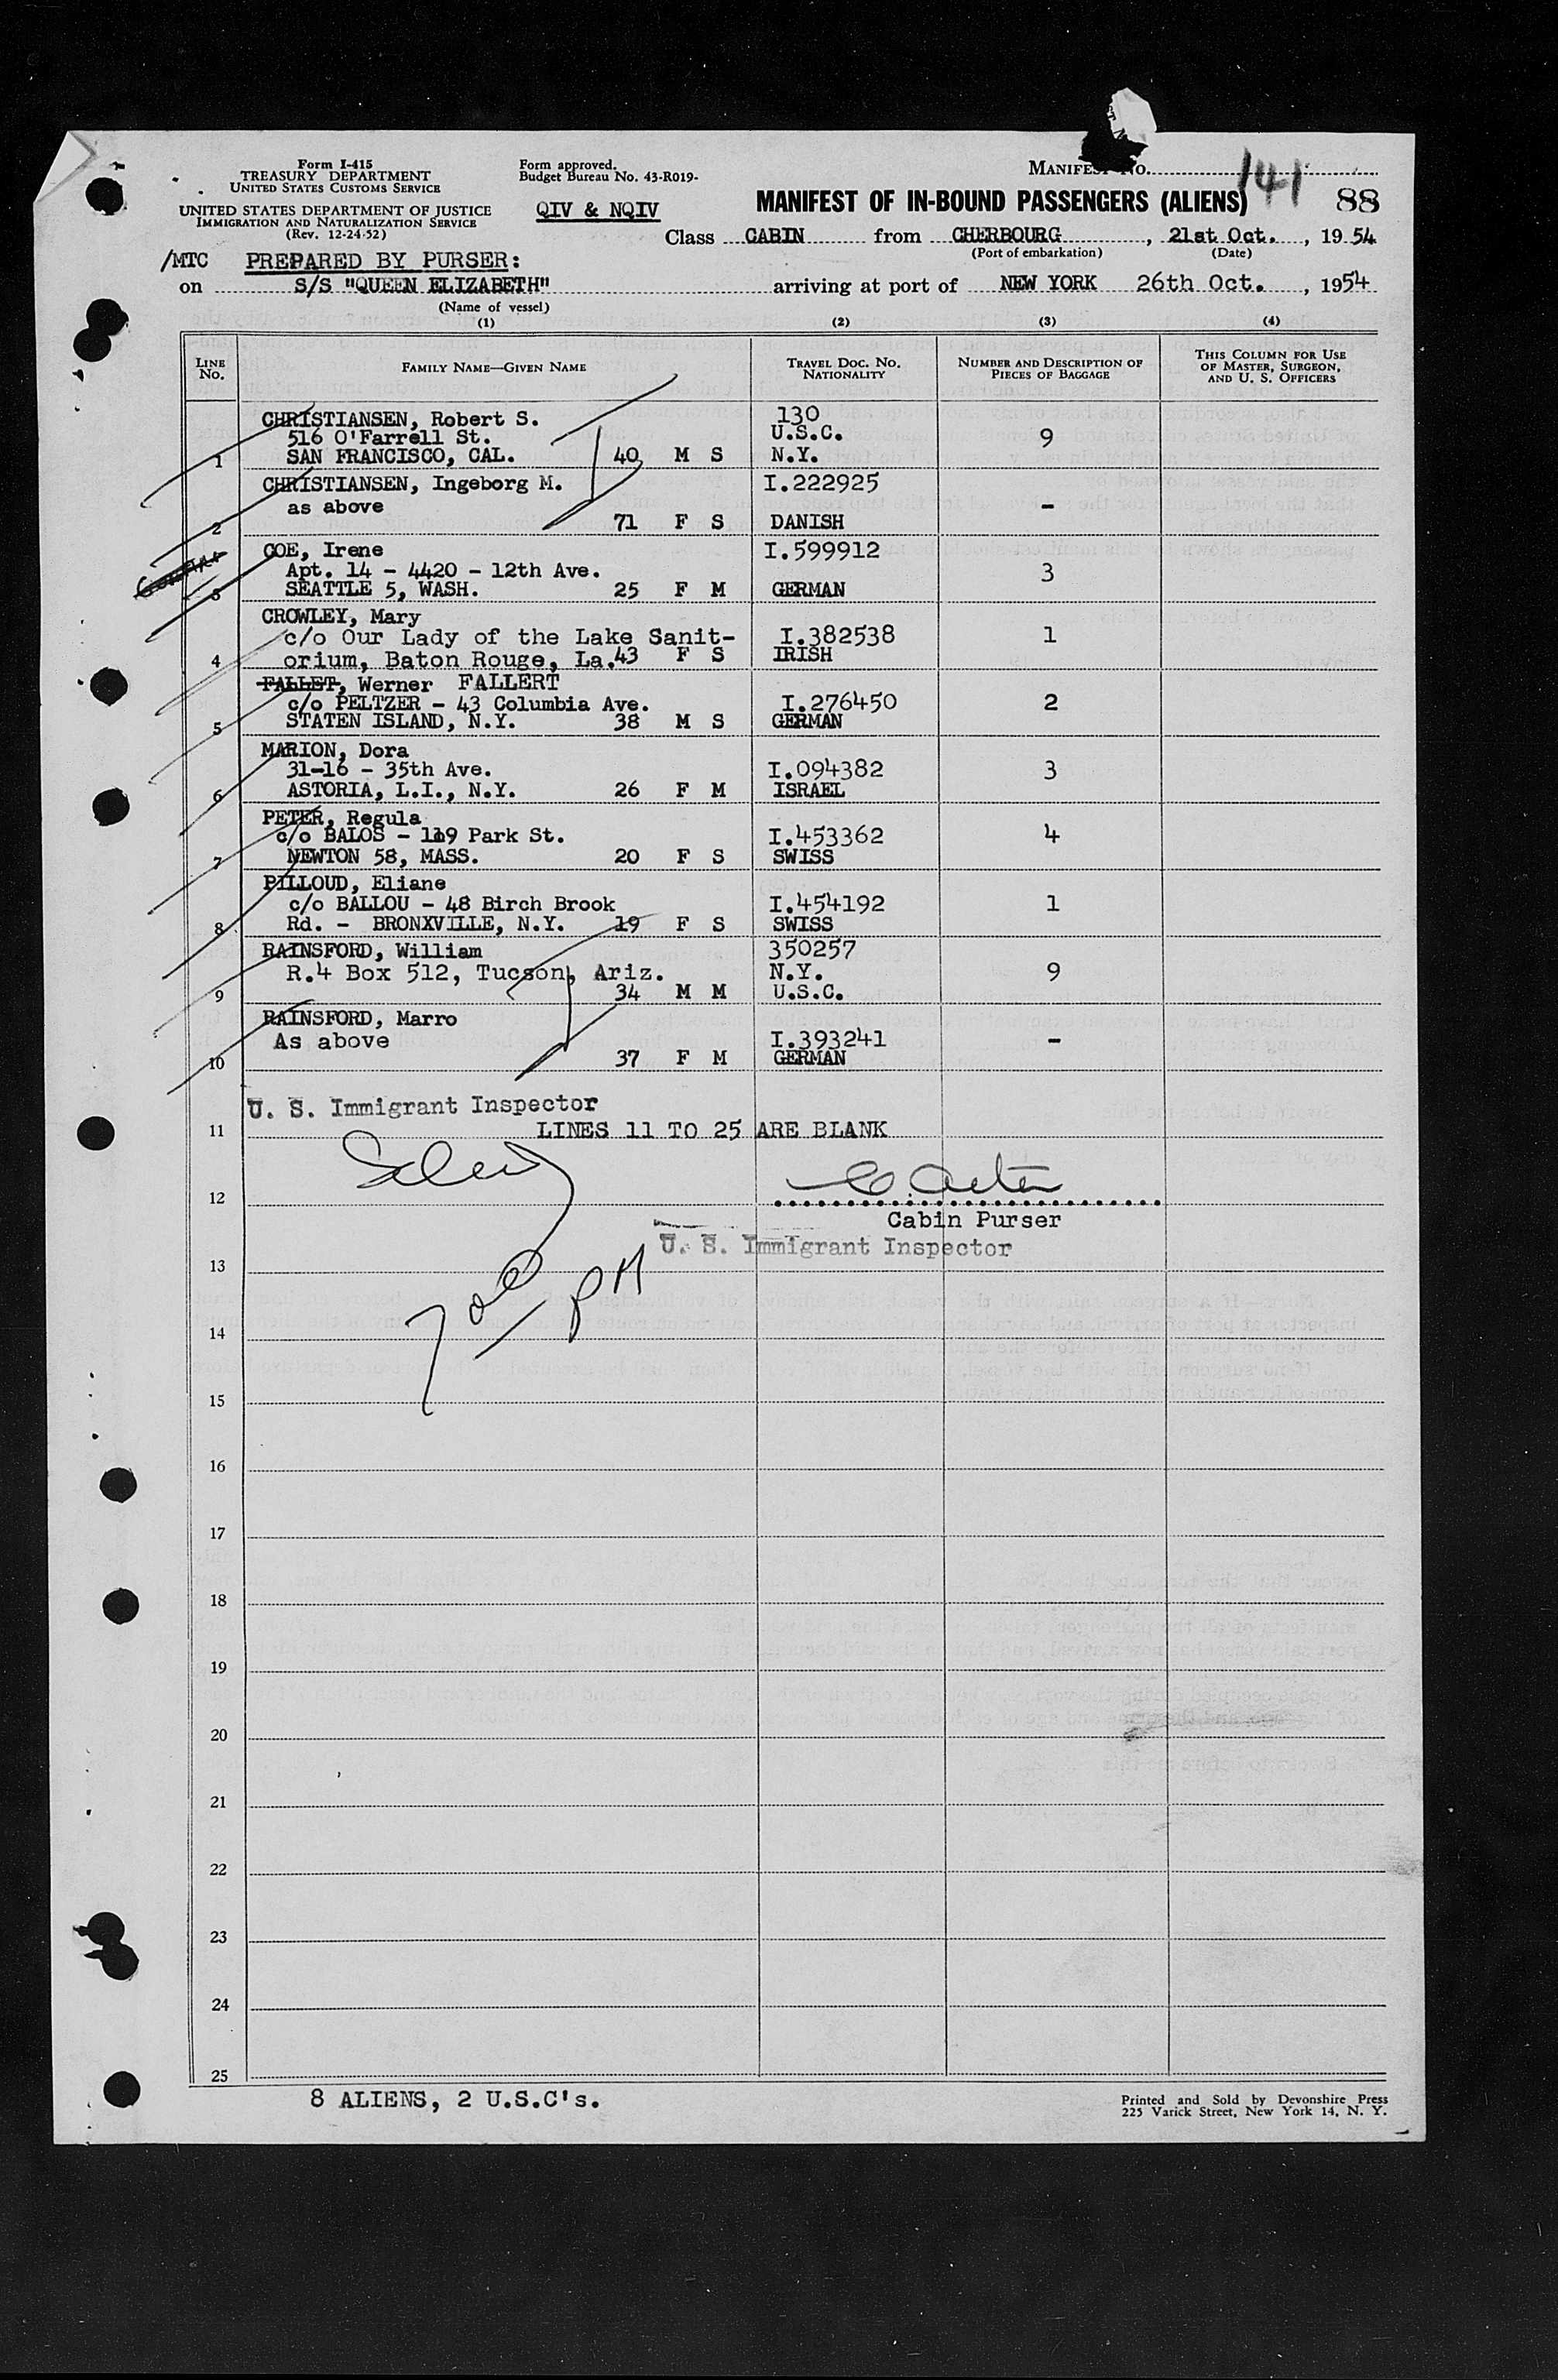 Form I-415
TREASURY DEPARTMENT
UNITED STATES CUSTOMS SERVICE
UNITED STATES DEPARTMENT OF JUSTICE
IMMIGRATION AND NATURALIZATION SERVICE
(Rev. 12-24-52)
Form approved.
Budget Bureau No. 43-R019-
QIV & NQIV
MANIFEST NO. 141
MANIFEST OF IN-BOUND PASSENGERS (ALIENS) 88
Class CABIN from CHERBOURG, 21st Oct., 1954
(Port of embarkation) (Date)
/MTC PREPARED BY PURSER:
on S/S "QUEEN ELIZABETH" arriving at port of NEW YORK 26th Oct., 1954
(Name of vessel)
(1) (2) (3) (4)
LINE No. FAMILY NAME—GIVEN NAME TRAVEL DOC. NO. NATIONALITY NUMBER AND DESCRIPTION OF PIECES OF BAGGAGE THIS COLUMN FOR USE OF MASTER, SURGEON, AND U. S. OFFICERS
CHRISTIANSEN, Robert S. 130
516 O'Farrell St. U.S.C. 9
1 SAN FRANCISCO, CAL. 40 M S N.Y.
CHRISTIANSEN, Ingeborg M. I.222925
as above -
2 71 F S DANISH
COE, Irene I.599912
Apt. 14 - 4420 - 12th Ave. 3
3 SEATTLE 5, WASH. 25 F M GERMAN
CROWLEY, Mary
c/o Our Lady of the Lake Sanit- I.382538 1
4 orium, Baton Rouge, La. 43 F S IRISH
FALLET, Werner FALLERT
c/o PELTZER - 43 Columbia Ave. I.276450 2
5 STATEN ISLAND, N.Y. 38 M S GERMAN
MARION, Dora
31-16 - 35th Ave. I.094382 3
6 ASTORIA, L.I., N.Y. 26 F M ISRAEL
PETER, Regula
c/o BALOS - 119 Park St. I.453362 4
7 NEWTON 58, MASS. 20 F S SWISS
PILLOUD, Eliane
c/o BALLOU - 48 Birch Brook I.454192 1
8 Rd. - BRONXVILLE, N.Y. 19 F S SWISS
RAINSFORD, William 350257
R.4 Box 512, Tucson, Ariz. N.Y. 9
9 34 M M U.S.C.
RAINSFORD, Marro
As above I.393241 -
10 37 F M GERMAN
U. S. Immigrant Inspector
11 LINES 11 TO 25 ARE BLANK
12
Cabin Purser
U. S. Immigrant Inspector
13
PM
14
15
16
17
18
19
20
21
22
23
24
25
8 ALIENS, 2 U.S.C's.
Printed and Sold by Devonshire Press
225 Varick Street, New York 14, N. Y.